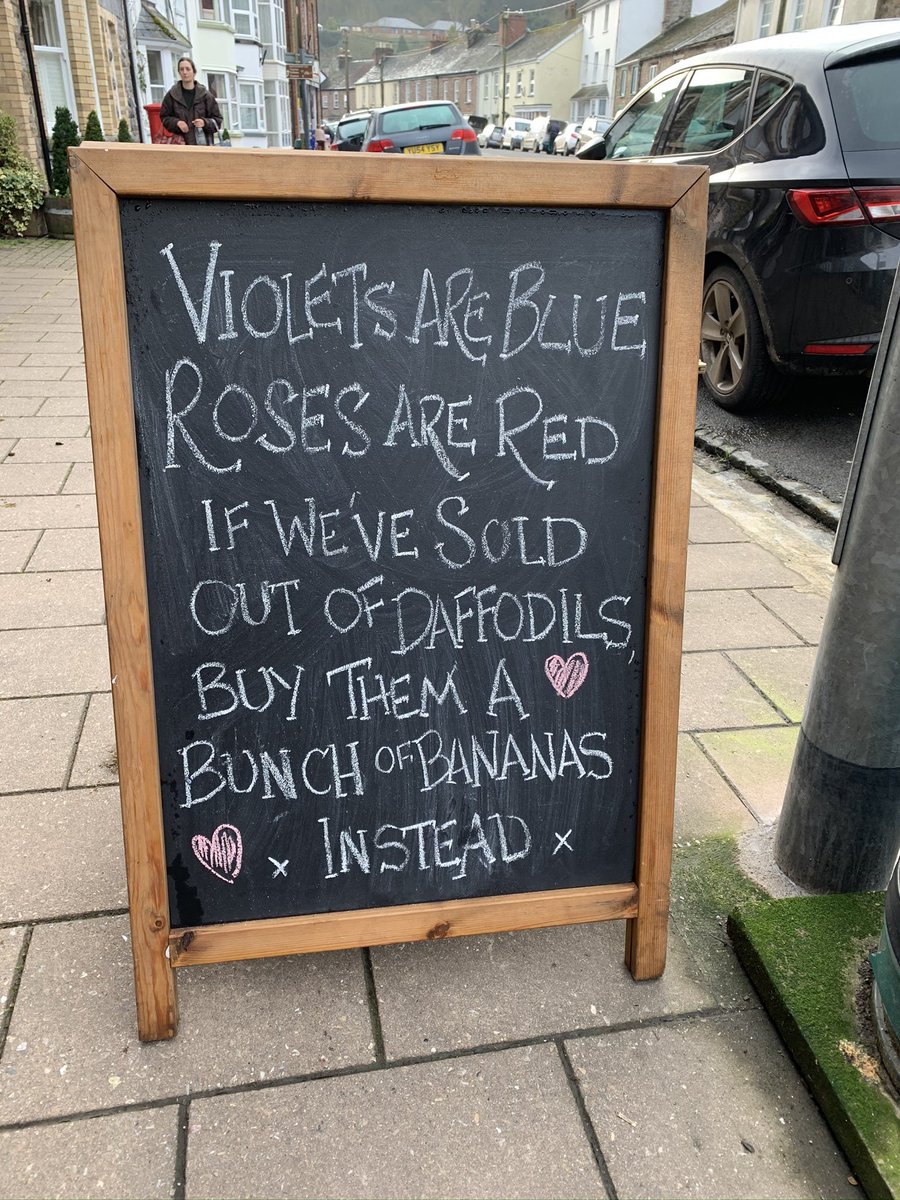 VIOLETS ARE BLUE
ROSES ARE RED
IF WE'VE SOLD
OUT OF DAFFODILS,
BUY THEM A
BUNCH OF BANANAS
x INSTEAD x
YU54 YSY